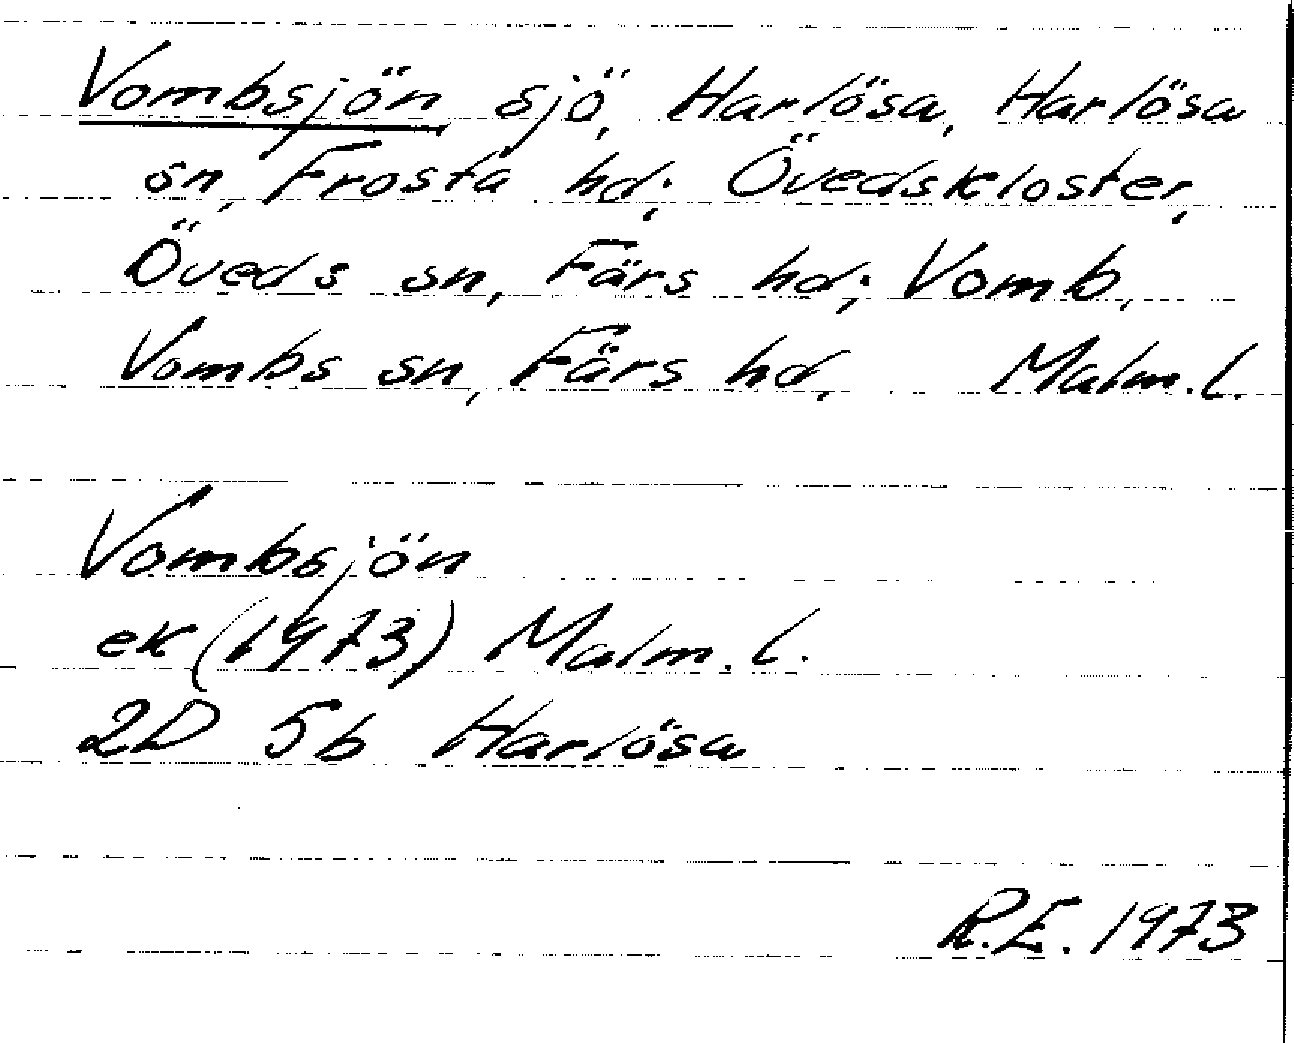 Vombsjön sjö, Harlösa, Harlösa
sn, Frosta hd; Övedskloster,
Öveds sn, Färs hd; Vomb,
Vombs sn, Färs hd, Malm. l.
Vombsjön
ek (1973) Malm. l.
2D 5b Harlösa
R.E. 1973